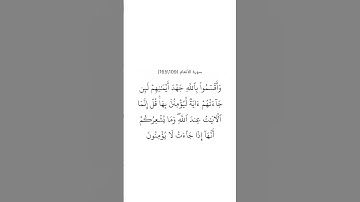 سورة الأنعام (165\109)
وَأَقْسَمُوا۟ بِٱللَّهِ جَهْدَ أَيْمَٰنِهِمْ لَئِن
جَآءَتْهُمْ ءَايَةٌ لَّيُؤْمِنُنَّ بِهَا ۚ قُلْ إِنَّمَا
ٱلْءَايَٰتُ عِندَ ٱللَّهِ ۖ وَمَا يُشْعِرُكُمْ
أَنَّهَآ إِذَا جَآءَتْ لَا يُؤْمِنُونَ